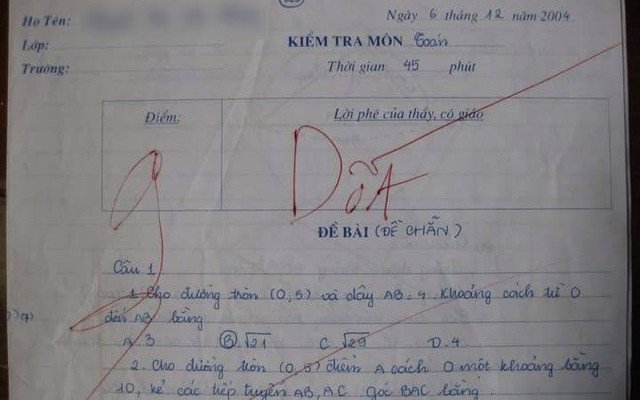 Họ Tên:
Ngày 6 tháng 12 năm 2004
Lớp:
KIỂM TRA MÔN Toán
Trường:
Thời gian 45 phút
Điểm:
Lời phê của thầy, cô giáo
9
ĐỀ BÀI (ĐỀ CHẴN)
Câu 1
1. Cho đường tròn (0,5) và dây AB = 4. Khoảng cách từ 0
đến AB bằng
A. 3 B. √21 C. √29 D. 4
2. Cho đường tròn (0,5) điểm A cách 0 một khoảng bằng
10, kẻ các tiếp tuyến AB, AC. góc BAC bằng.